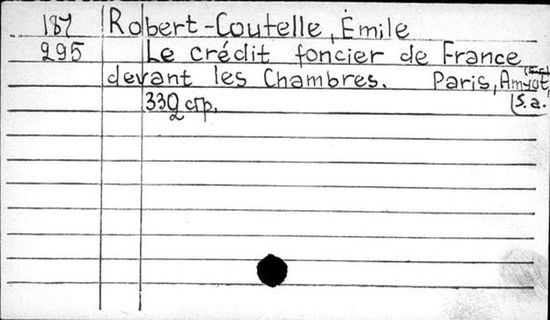 187 Robert-Coutelle, Émile
295 Le crédit foncier de France
devant les Chambres. Paris, Amyot,
s.a.
332 стр.